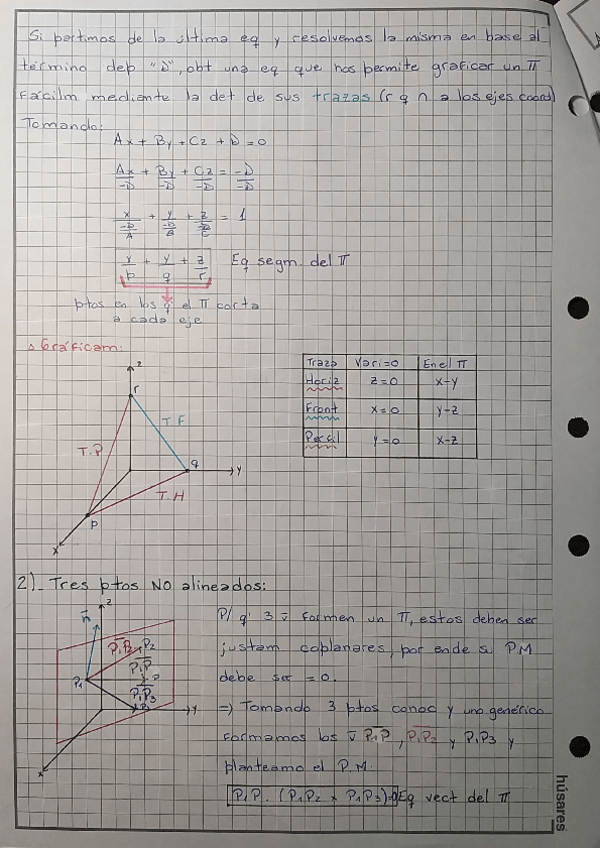 Si partimos de la última eq y resolvemos la misma en base al
término dep "D", obt una eq que nos permite graficar un π
fácilm mediante la det de sus trazas (r q ∩ a los ejes coord)
Tomando:
Ax + By + Cz + D = 0
Ax/-D + By/-D + Cz/-D = -D/-D
x/(-D/A) + y/(-D/B) + z/(-D/C) = 1
x/p + y/q + z/r Eq segm. del π
ptos en los q' el π corta
a cada eje
Gráficam:
z
r
T.F
T.P
q
y
T.H
p
x
Traza Vari=0 En el π
Horiz z=0 x-y
Front x=0 y-z
Perfil y=0 x-z
2)_ Tres ptos NO alineados:
n z
P1P2 P2
P1P
P1 P
P1P3
P3 y
x
P/ q' 3 v formen un π, estos deben ser
justam coplanares, por ende su PM
debe ser = 0.
=) Tomando 3 ptos conoc y uno genérico
formamos los v P1P, P1P2 y P1P3 y
planteamo el P.M.
P1P . (P1P2 x P1P3)=0 Eq vect del π
húsares